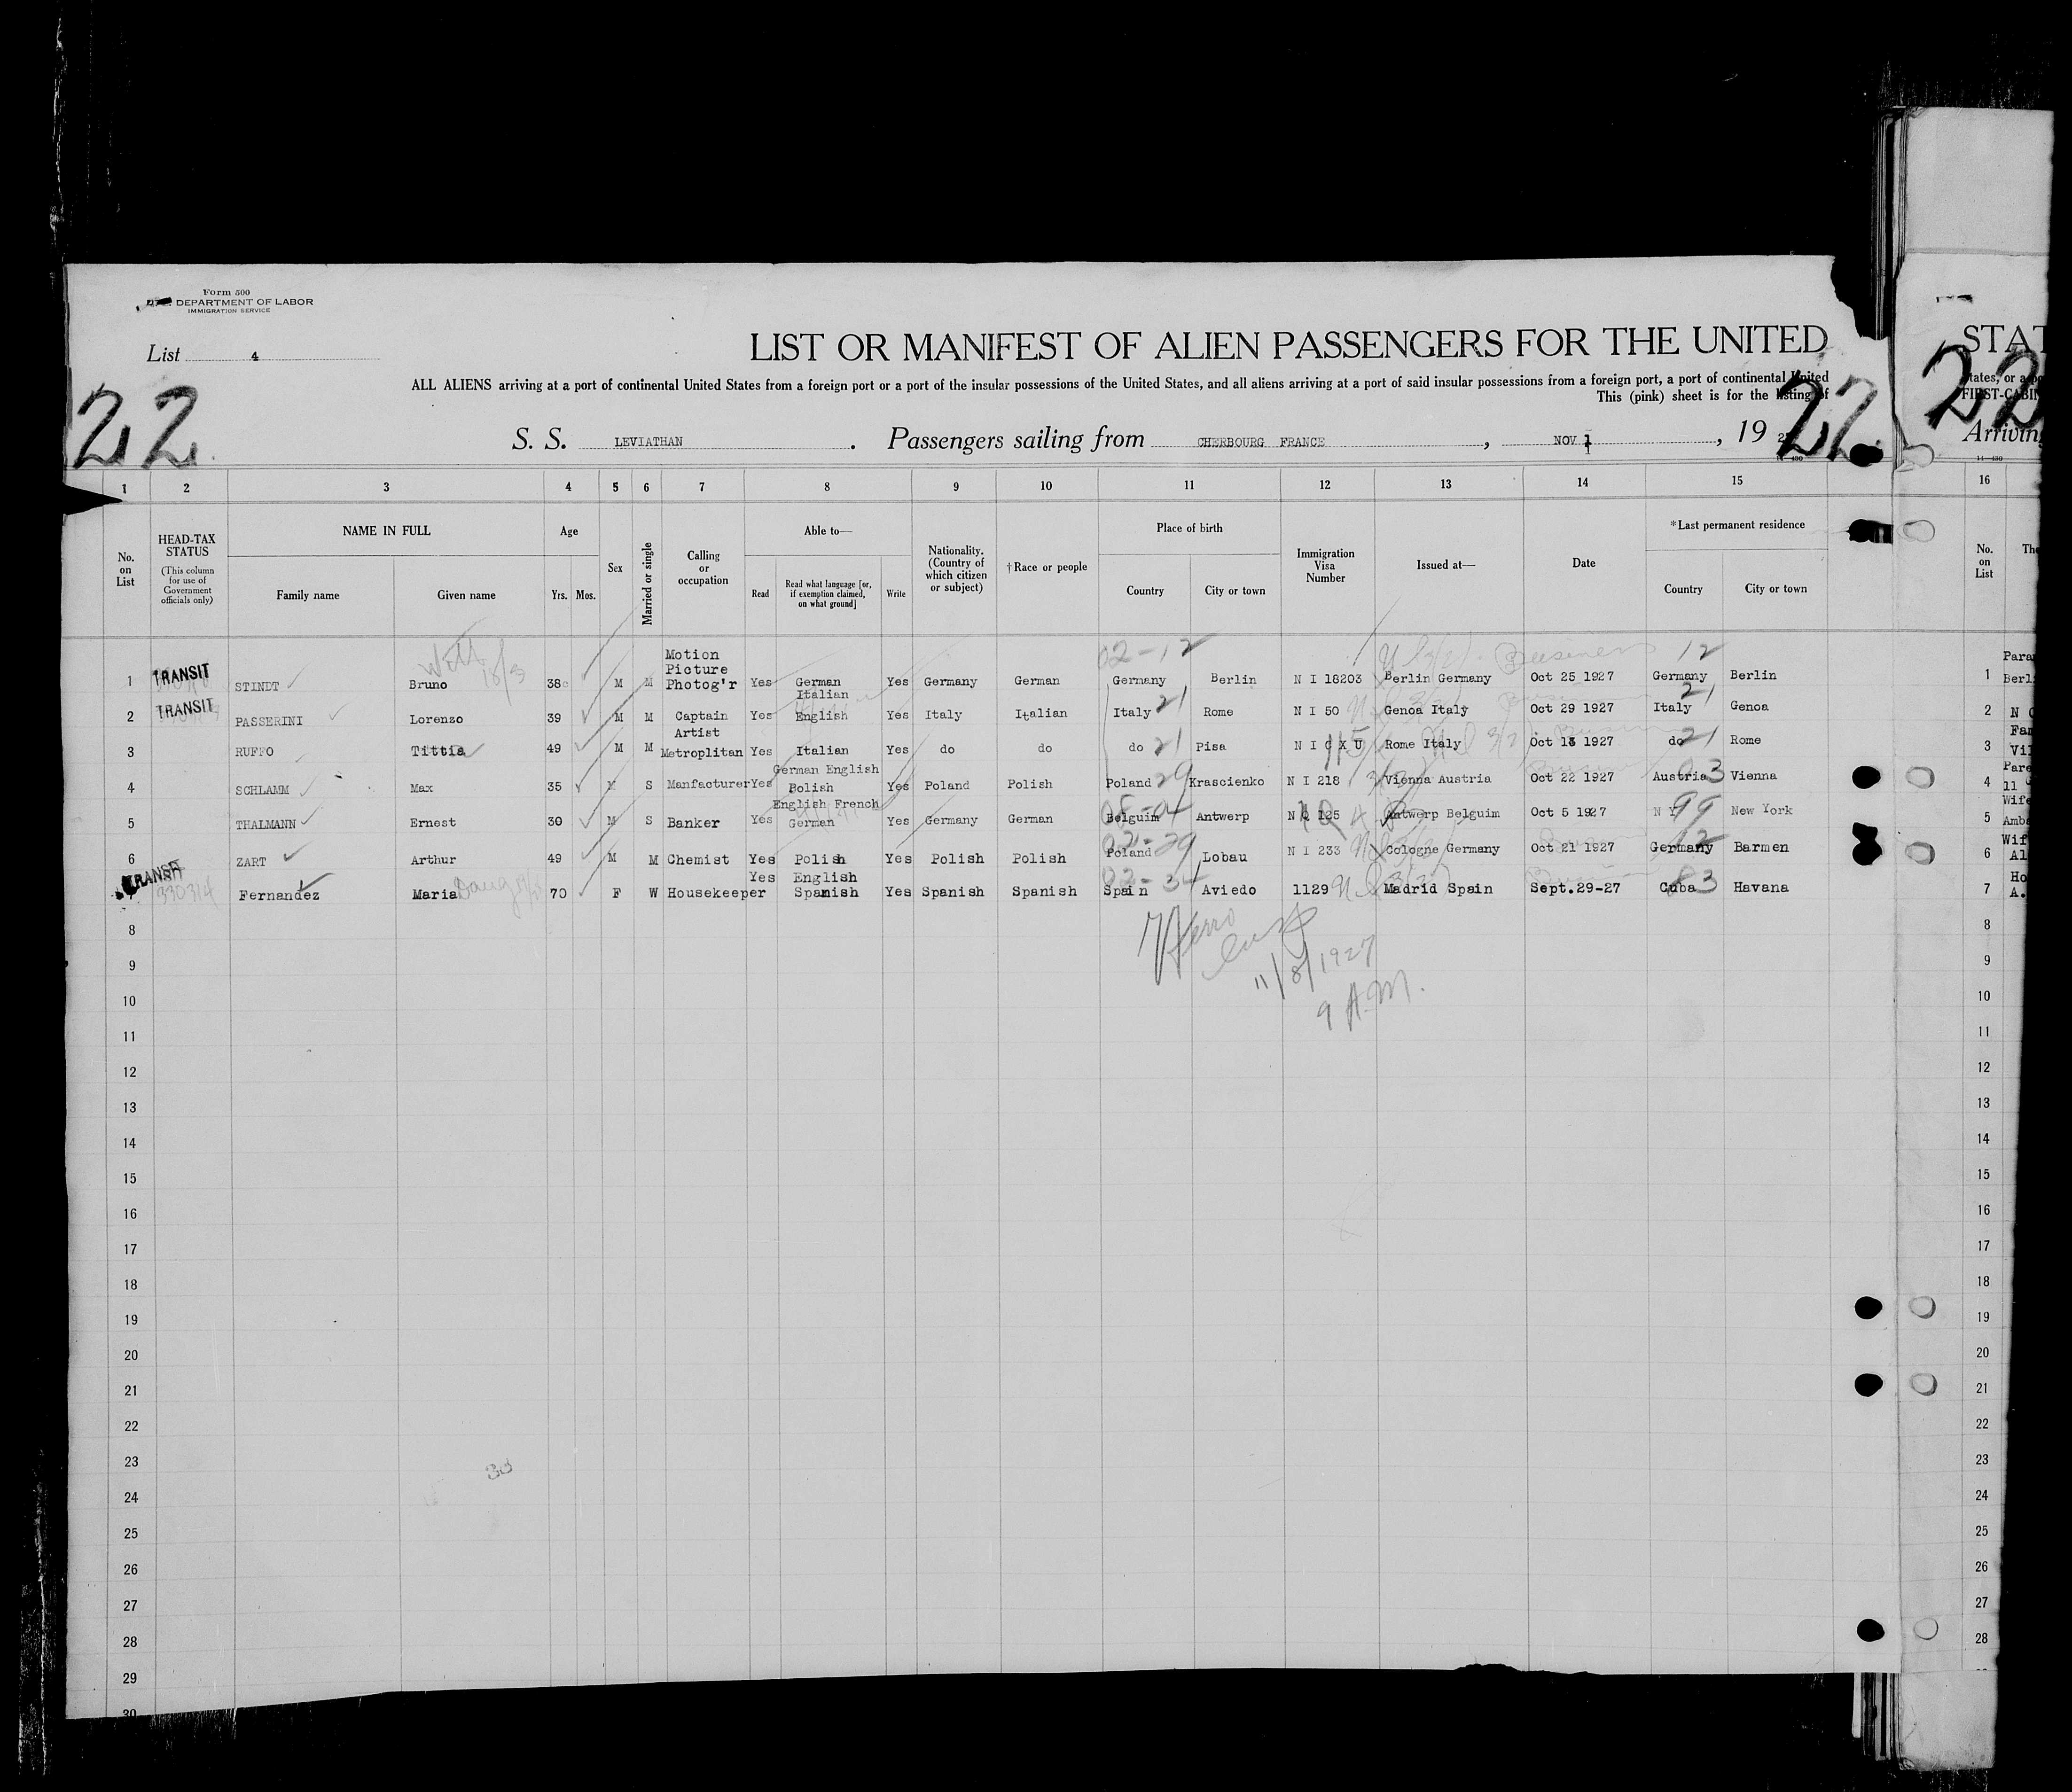 Form 500
DEPARTMENT OF LABOR
IMMIGRATION SERVICE
List 4
LIST OR MANIFEST OF ALIEN PASSENGERS FOR THE UNITED
ALL ALIENS arriving at a port of continental United States from a foreign port or a port of the insular possessions of the United States, and all aliens arriving at a port of said insular possessions from a foreign port, a port of continental United
This (pink) sheet is for the listing of
22 22
S. S. LEVIATHAN. Passengers sailing from CHERBOURG FRANCE, NOV 1, 19
1 2 3 4 5 6 7 8 9 10 11 12 13 14 15
No. on List
HEAD-TAX STATUS (This column for use of Government officials only)
NAME IN FULL
Family name Given name
Age
Yrs. Mos.
Sex
Married or single
Calling or occupation
Able to—
Read
Read what language [or, if exemption claimed, on what ground]
Write
Nationality. (Country of which citizen or subject)
†Race or people
Place of birth
Country City or town
Immigration Visa Number
Issued at—
Date
*Last permanent residence
Country City or town
1 TRANSIT STINDT Bruno 38 M M Motion Picture Photog'r Yes German Yes Germany German Germany Berlin N I 18203 Berlin Germany Oct 25 1927 Germany Berlin
2 TRANSIT PASSERINI Lorenzo 39 M M Captain Yes Italian English Yes Italy Italian Italy 21 Rome N I 50 Genoa Italy Oct 29 1927 Italy 21 Genoa
3 RUFFO Tittia 49 M M Artist Metroplitan Yes Italian Yes do do do 21 Pisa Rome Italy Oct 13 1927 do 21 Rome
4 SCHLAMM Max 35 M S Manfacturer Yes German English Polish Yes Poland Polish Poland 29 Krascienko N I 218 Vienna Austria Oct 22 1927 Austria Vienna
5 THALMANN Ernest 30 M S Banker Yes English French German Yes Germany German Belguim Antwerp 125 Antwerp Belguim Oct 5 1927 N Y 99 New York
6 ZART Arthur 49 M M Chemist Yes Polish Yes Polish Polish Poland Lobau N I 233 Cologne Germany Oct 21 1927 Germany 12 Barmen
7 TRANSIT Fernandez Maria 70 F W Housekeeper Yes English Spanish Yes Spanish Spanish Spain Aviedo 1129 Madrid Spain Sept.29-27 Cuba Havana
11/8/1927
9 A.M.
8
9
10
11
12
13
14
15
16
17
18
19
20
21
22
23
24
25
26
27
28
29
30
STAT
22
FIRST-CABIN
Arriving
16
No. on List
1
2
3
4
5
6
7
8
9
10
11
12
13
14
15
16
17
18
19
20
21
22
23
24
25
26
27
28